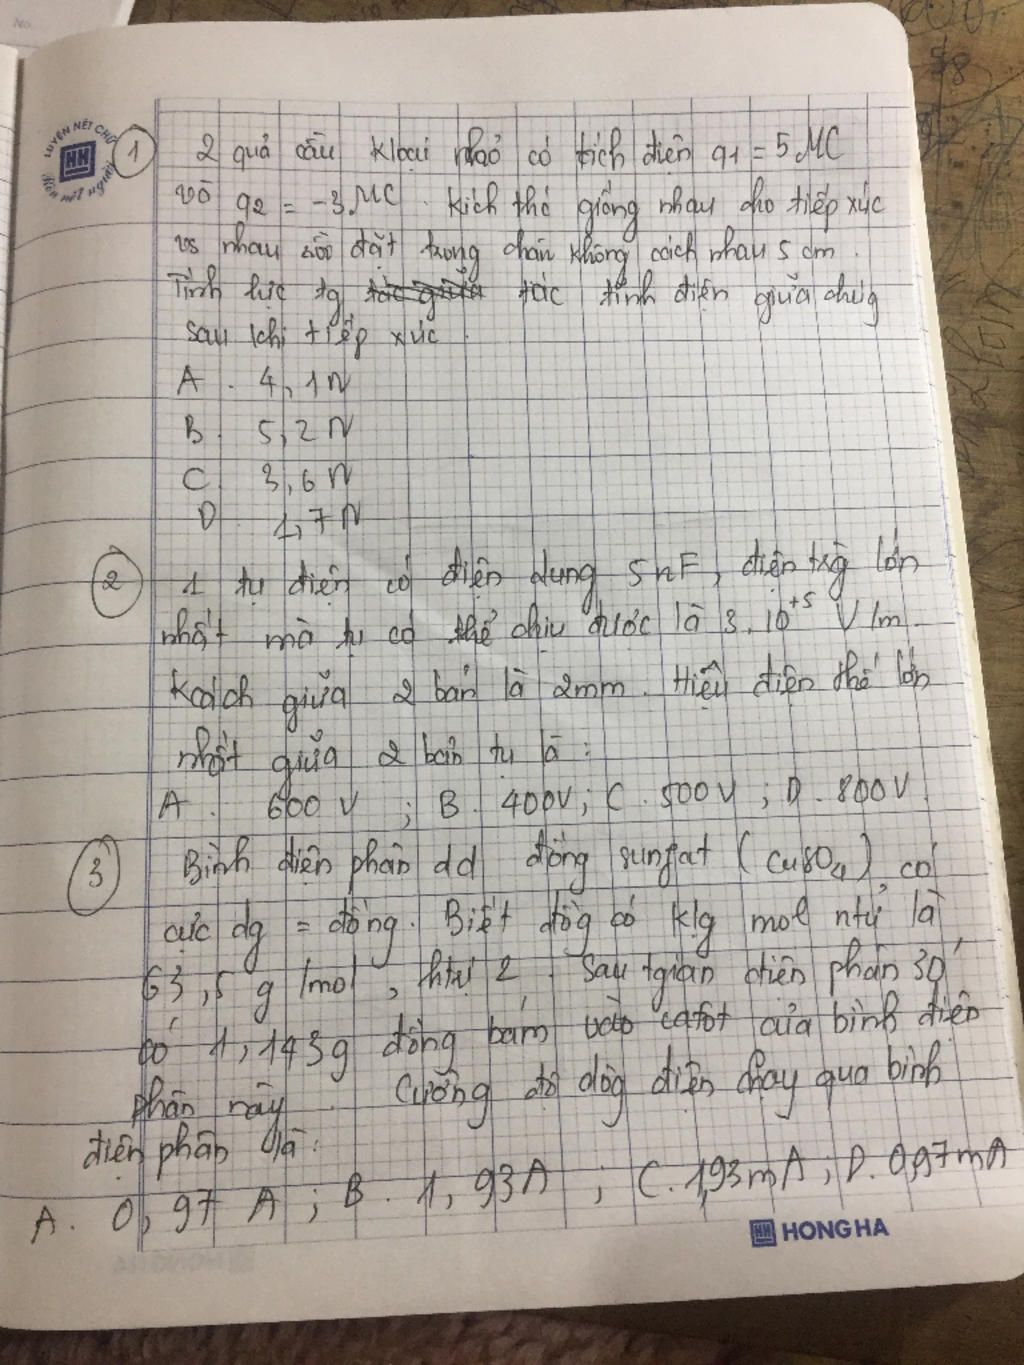 No.
LUYỆN NẾT CHỮ
HH
Rèn nết người
1 2 quả cầu kloại nhỏ có tích điện q1 = 5 MC
và q2 = -3 MC. Kích thc giống nhau cho tiếp xúc
vs nhau rồi đặt trong chân không cách nhau 5 cm.
Tính lực tg tác tĩnh điện giữa chúg
sau khi tiếp xúc.
A. 4,1N
B. 5,2N
C. 3,6N
D. 1,7N
2 1 tụ điện có điện dung 5nF, điện trg lớn
nhất mà tụ có thể chịu được là 3.10+5 V/m.
Kcách giữa 2 bản là 2mm. Hiệu điện thế lớn
nhất giữa 2 bản tụ là:
A. 600V ; B. 400V; C. 500V ; D. 800V
3 Bình điện phân dd đồng sunfat (CuSO4) có
cực dg = đồng. Biết đồg có klg mol ntử là
63,5 g/mol, htrị 2. Sau tgian điện phân 30'
có 1,143g đồng bám vào catot của bình điện
phân này. Cường độ dòg điện chạy qua bình
điện phân là:
A. 0,97 A ; B. 1,93A ; C. 1,93mA ; D. 0,97mA
HH HONG HA